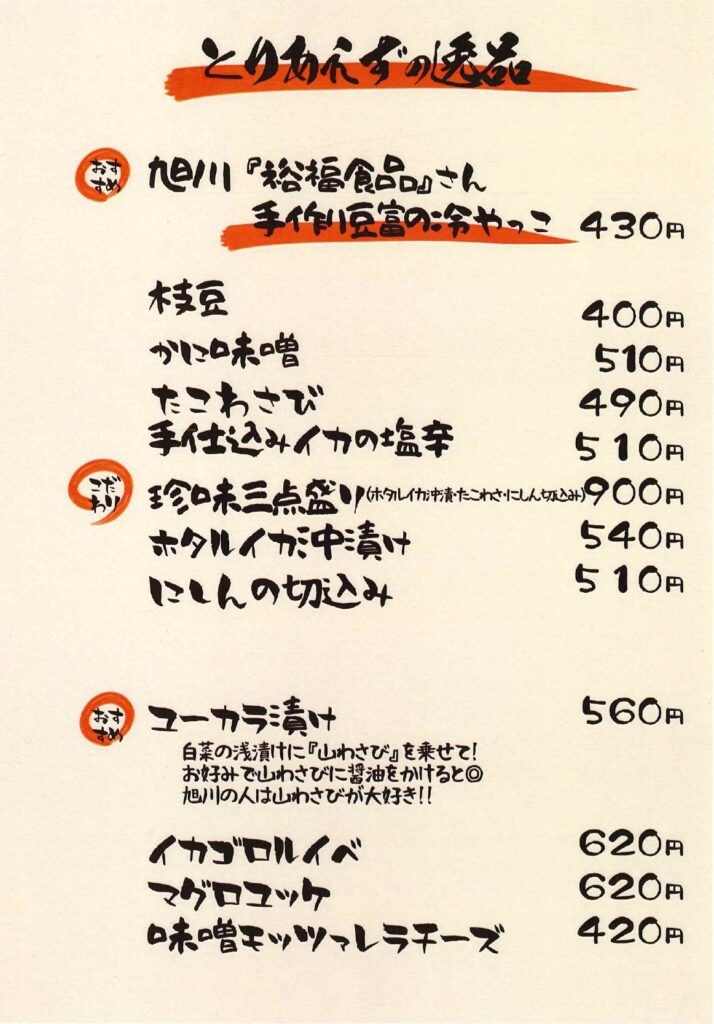 とりあえずの逸品
おすすめ
旭川『裕福食品』さん
手作り豆富の冷やっこ 430円
枝豆 400円
かに味噌 510円
たこわさび 490円
手仕込みイカの塩辛 510円
こだわり
珍味三点盛り(ホタルイカ沖漬・たこわさ・にしん切込み) 900円
ホタルイカ沖漬け 540円
にしんの切込み 510円
おすすめ
ユーカラ漬け 560円
白菜の浅漬けに『山わさび』を乗せて!
お好みで山わさびに醤油をかけると◎
旭川の人は山わさびが大好き!!
イカゴロルイベ 620円
マグロユッケ 620円
味噌モッツァレラチーズ 420円